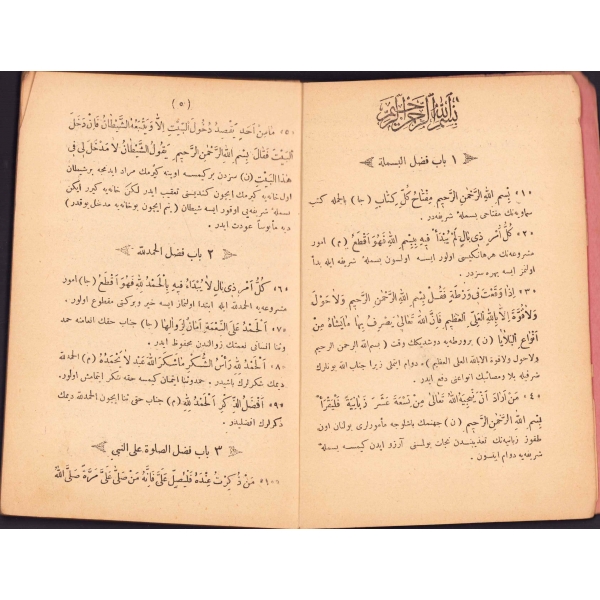 بسم الله الرحمن الرحيم
١ باب فضل البسملة
٠١٠ بِسْمِ اللهِ الرَّحْمٰنِ الرَّحِيمِ مِفْتَاحُ كُلِّ كِتَابٍ (جا) بالجمله كتب
سماويه‌نك مفتاحى بسملهٔ شريفه‌در.
٠٢٠ كُلُّ اَمْرٍ ذِى بَالٍ لَمْ يُبْدَأْ فِيهِ بِبِسْمِ اللهِ فَهُوَ اَقْطَعُ (م) امور
مشروعه‌نك هرهانكيسى اولور ايسه اولسون بسملهٔ شريفه ايله بدأ
اولنماز ايسه بهره سزدر.
٠٣٠ اِذَا وَقَعْتَ فِى وَرْطَةٍ فَقُلْ بِسْمِ اللهِ الرَّحْمٰنِ الرَّحِيمِ وَلَا حَوْلَ
وَلَا قُوَّةَ اِلَّا بِاللهِ الْعَلِىِّ الْعَظِيمِ فَاِنَّ اللهَ تَعَالٰى يَصْرِفُ بِهَا مَا يَشَاءُ مِنْ
اَنْوَاعِ الْبَلَايَا (ن) برورطه‌يه دوشديكك وقت (بسم الله الرحمن الرحيم
ولاحول ولاقوة الا بالله العلى العظيم) ه دوام ايتملى زيرا جناب الله بونارك
شرفيله بلا ومصائبك انواعنى دفع ايدر.
٠٤٠ مَنْ اَرَادَ اَنْ يُنْجِيَهُ اللهُ تَعَالٰى مِنْ تِسْعَةَ عَشَرَ زَبَانِيَةً فَلْيَقْرَأْ
بِسْمِ اللهِ الرَّحْمٰنِ الرَّحِيمِ (ن) جهنمك باشلوجه مأمورلرى بولنان اون
طقوز زبانيه‌نك تعذيبندن نجات بولمسنى آرزو ايدن كيمسه بسملهٔ
شريفه‌يه دوام ايلسون.
(٥)
٠٥٠ مَا مِنْ اَحَدٍ يَقْصِدُ دُخُولَ الْبَيْتِ اِلَّا وَيَتْبَعُهُ الشَّيْطَانُ فَاِنْ دَخَلَ
الْبَيْتَ فَقَالَ بِسْمِ اللهِ الرَّحْمٰنِ الرَّحِيمِ يَقُولُ الشَّيْطَانُ لَا مَدْخَلَ لِى فِى
هٰذَا الْبَيْتِ (ن) سزدن بر كيمسه اوينه كيرمك مراد ايدنجه برشيطان
اول خانه‌يه كيرمك ايچون كنديسنى تعقيب ايدر لكن خانه‌يه كيرر ايكن
بسملهٔ شريفه‌يى اوقور ايسه شيطان (بنم ايچون بوخانه‌يه مدخل يوقدر)
ديه مأيوساً عودت ايدر.
٢ باب فضل الحمدلله
٠٦٠ كُلُّ اَمْرٍ ذِى بَالٍ لَا يُبْتَدَأُ فِيهِ بِالْحَمْدُ لِلهِ فَهُوَ اَقْطَعُ (جا) امور
مشروعه‌يه الحمدلله ايله ابتدا اولنماز ايسه خير وبركتى مقطوع اولور.
٠٧٠ اَلْحَمْدُ عَلَى النِّعْمَةِ اَمَانٌ لِزَوَالِهَا (جا) جناب حقك انعامنه حمد
وثنا انسانى نعمتك زوالندن محفوظ ايدر.
٠٨٠ اَلْحَمْدُ لِلهِ رَأْسُ الشُّكْرِ مَا شَكَرَ اللهَ عَبْدٌ لَا يَحْمَدُهُ (م) الحمدلله
ديمك شكرلرك باشيدر. حمدوثنا ايتميان كيمسه حقه شكر ايتمامش اولور.
٠٩٠ اَفْضَلُ الذِّكْرِ اَلْحَمْدُ لِلهِ (م) جناب حقى ثنا ايچون الحمدلله ديمك
ذكرلرك افضليدر.
٣ باب فضل الصلوة على النبى
٠١٠ مَنْ ذُكِرْتُ عِنْدَهُ فَلْيُصَلِّ عَلَىَّ فَاِنَّهُ مَنْ صَلّٰى عَلَىَّ مَرَّةً صَلَّى اللهُ